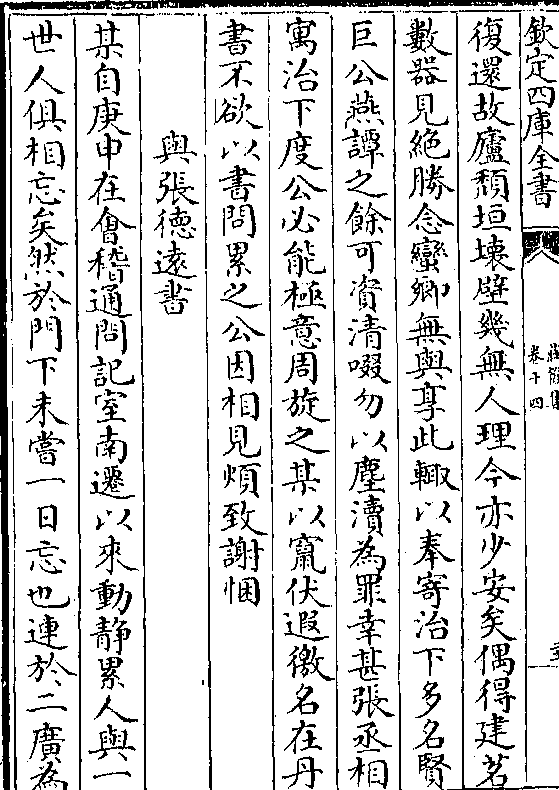 欽定四庫全書
卷十四
復還故廬頽垣壊壁幾無人理今亦少安矣偶得建茗
數器見絶勝念蠻鄉無與享此輙以奉寄治下多名賢
巨公燕譚之餘可資清啜勿以塵瀆為罪幸甚張丞相
寓治下度公必能極意周旋之某以竄伏遐徼名在丹
書不欲以書問累之公因相見煩致謝悃
與張德遠書
某自庚申在㑹稽通問記室南遷以來動静累人與一
世人俱相忘矣然於門下未嘗一日忘也連於二廣為